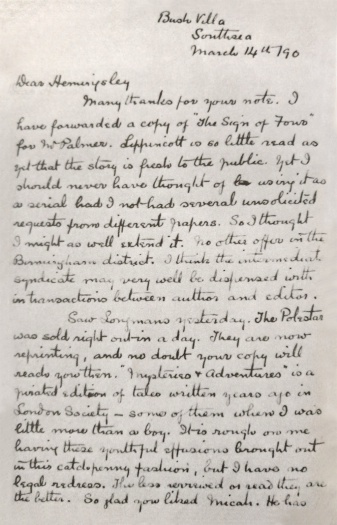 Bush Villa
Southsea
March 14th/90
Dear Hemingsley
Many thanks for your note. I
have forwarded a copy of "The Sign of Four"
for Mr Palmer. Lippincott is so little read as
yet that the story is fresh to the public. Yet I
should never have thought of using it as
a serial had I not had several unsolicited
requests from different papers. So I thought
I might as well extend it. No other offer in the
Birmingham district. I think the intermediate
syndicate may very well be dispensed with
in transactions between author and editor.
Saw Longmans yesterday. The Polestar
was sold right out in a day. They are now
reprinting, and no doubt your copy will
reach you then. "Mysteries & Adventures" is a
pirated edition of tales written years ago in
London Society – some of them when I was
little more than a boy. It is rough on me
having these youthful effusions brought out
in this catchpenny fashion, but I have no
legal redress. The less reviewed or read they are
the better. So glad you liked Micah. He has